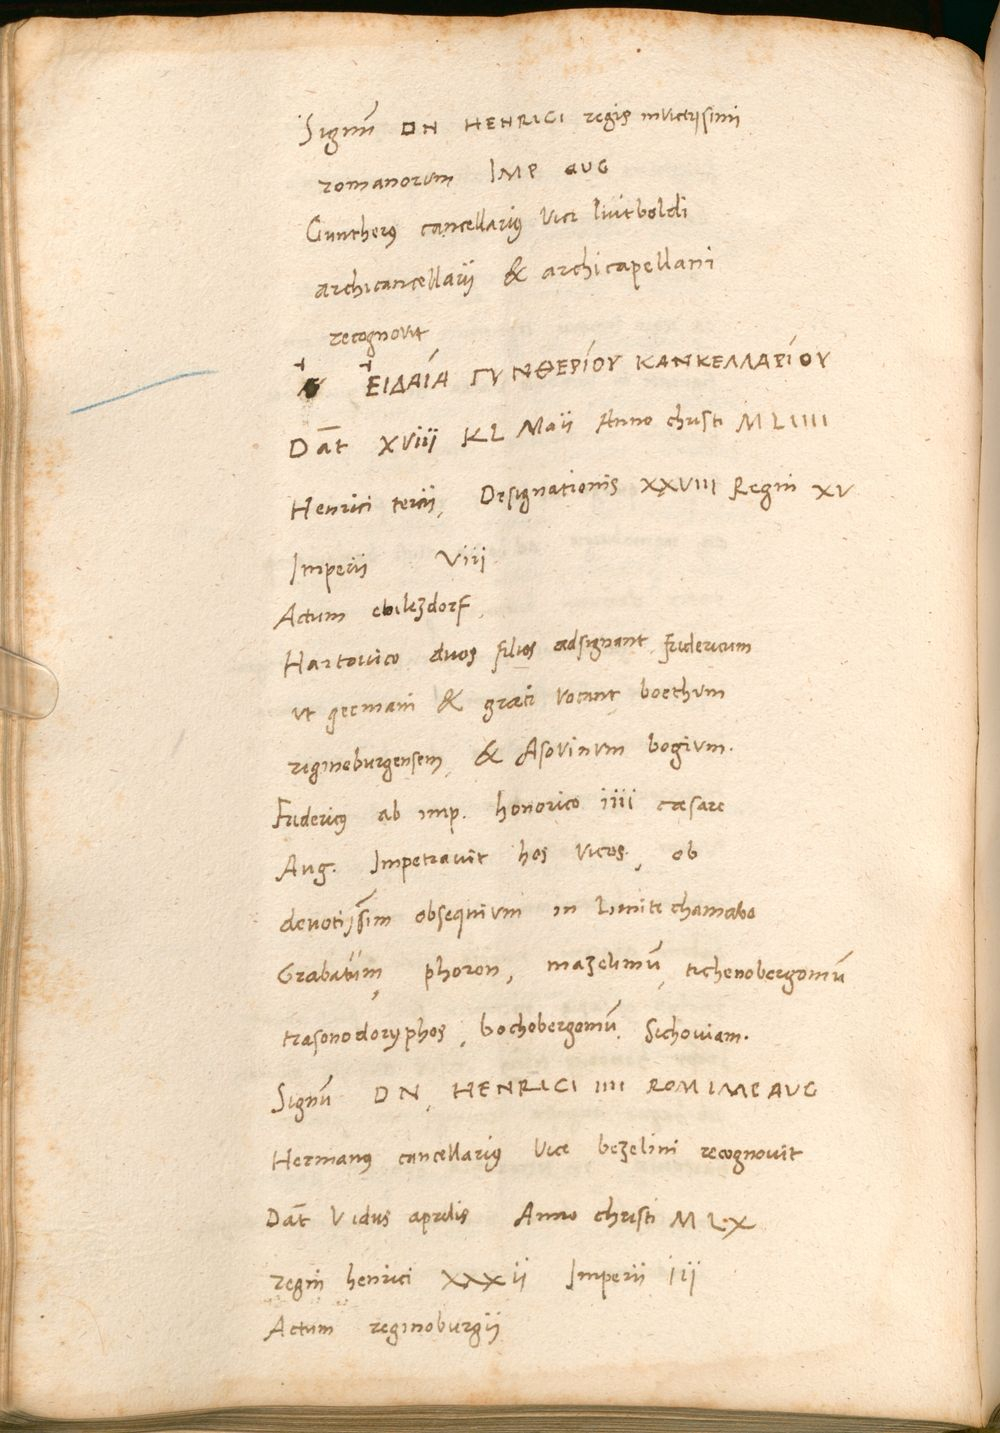 Signũ DN HENRICI regis invictissimi
romanorum IMP AUG
Guntherus cancellarius Vice luitboldi
archicancellarii & archicapellani
recognovit
ΕΙΔΑΊΑ ΓΥΝΘΕΡΊΟΥ ΚΑΝΚΕΛΛΑΡΊΟΥ
Dāt XViii KL Maii Anno christi MLIIII
Henrici tercii, Designationis XXVIII Regni XV
Imperii Viij
Actum ebilezdorf
Hartovico duos filios adsignant fridericum
ut germani & græci vocant boethum
regineburgensem, & Asovinum bogium.
Fridericus ab imp. honorico iiii cæsare
Aug. Impetravit hos vicos, ob
devotissim obsequium in Limite chamabo
Grabatum, phoron, mazelimũ, tichenobergomũ
trasonodoryphos, bochobergomũ, Sichoviam.
Signũ DN, HENRICI IIII ROM IMP AUG
Hermanus cancellarius Vice bezelini recognovit
Dāt V idus aprilis Anno christi MLX
regni henrici XXXii Imperii iij
Actum reginoburgii